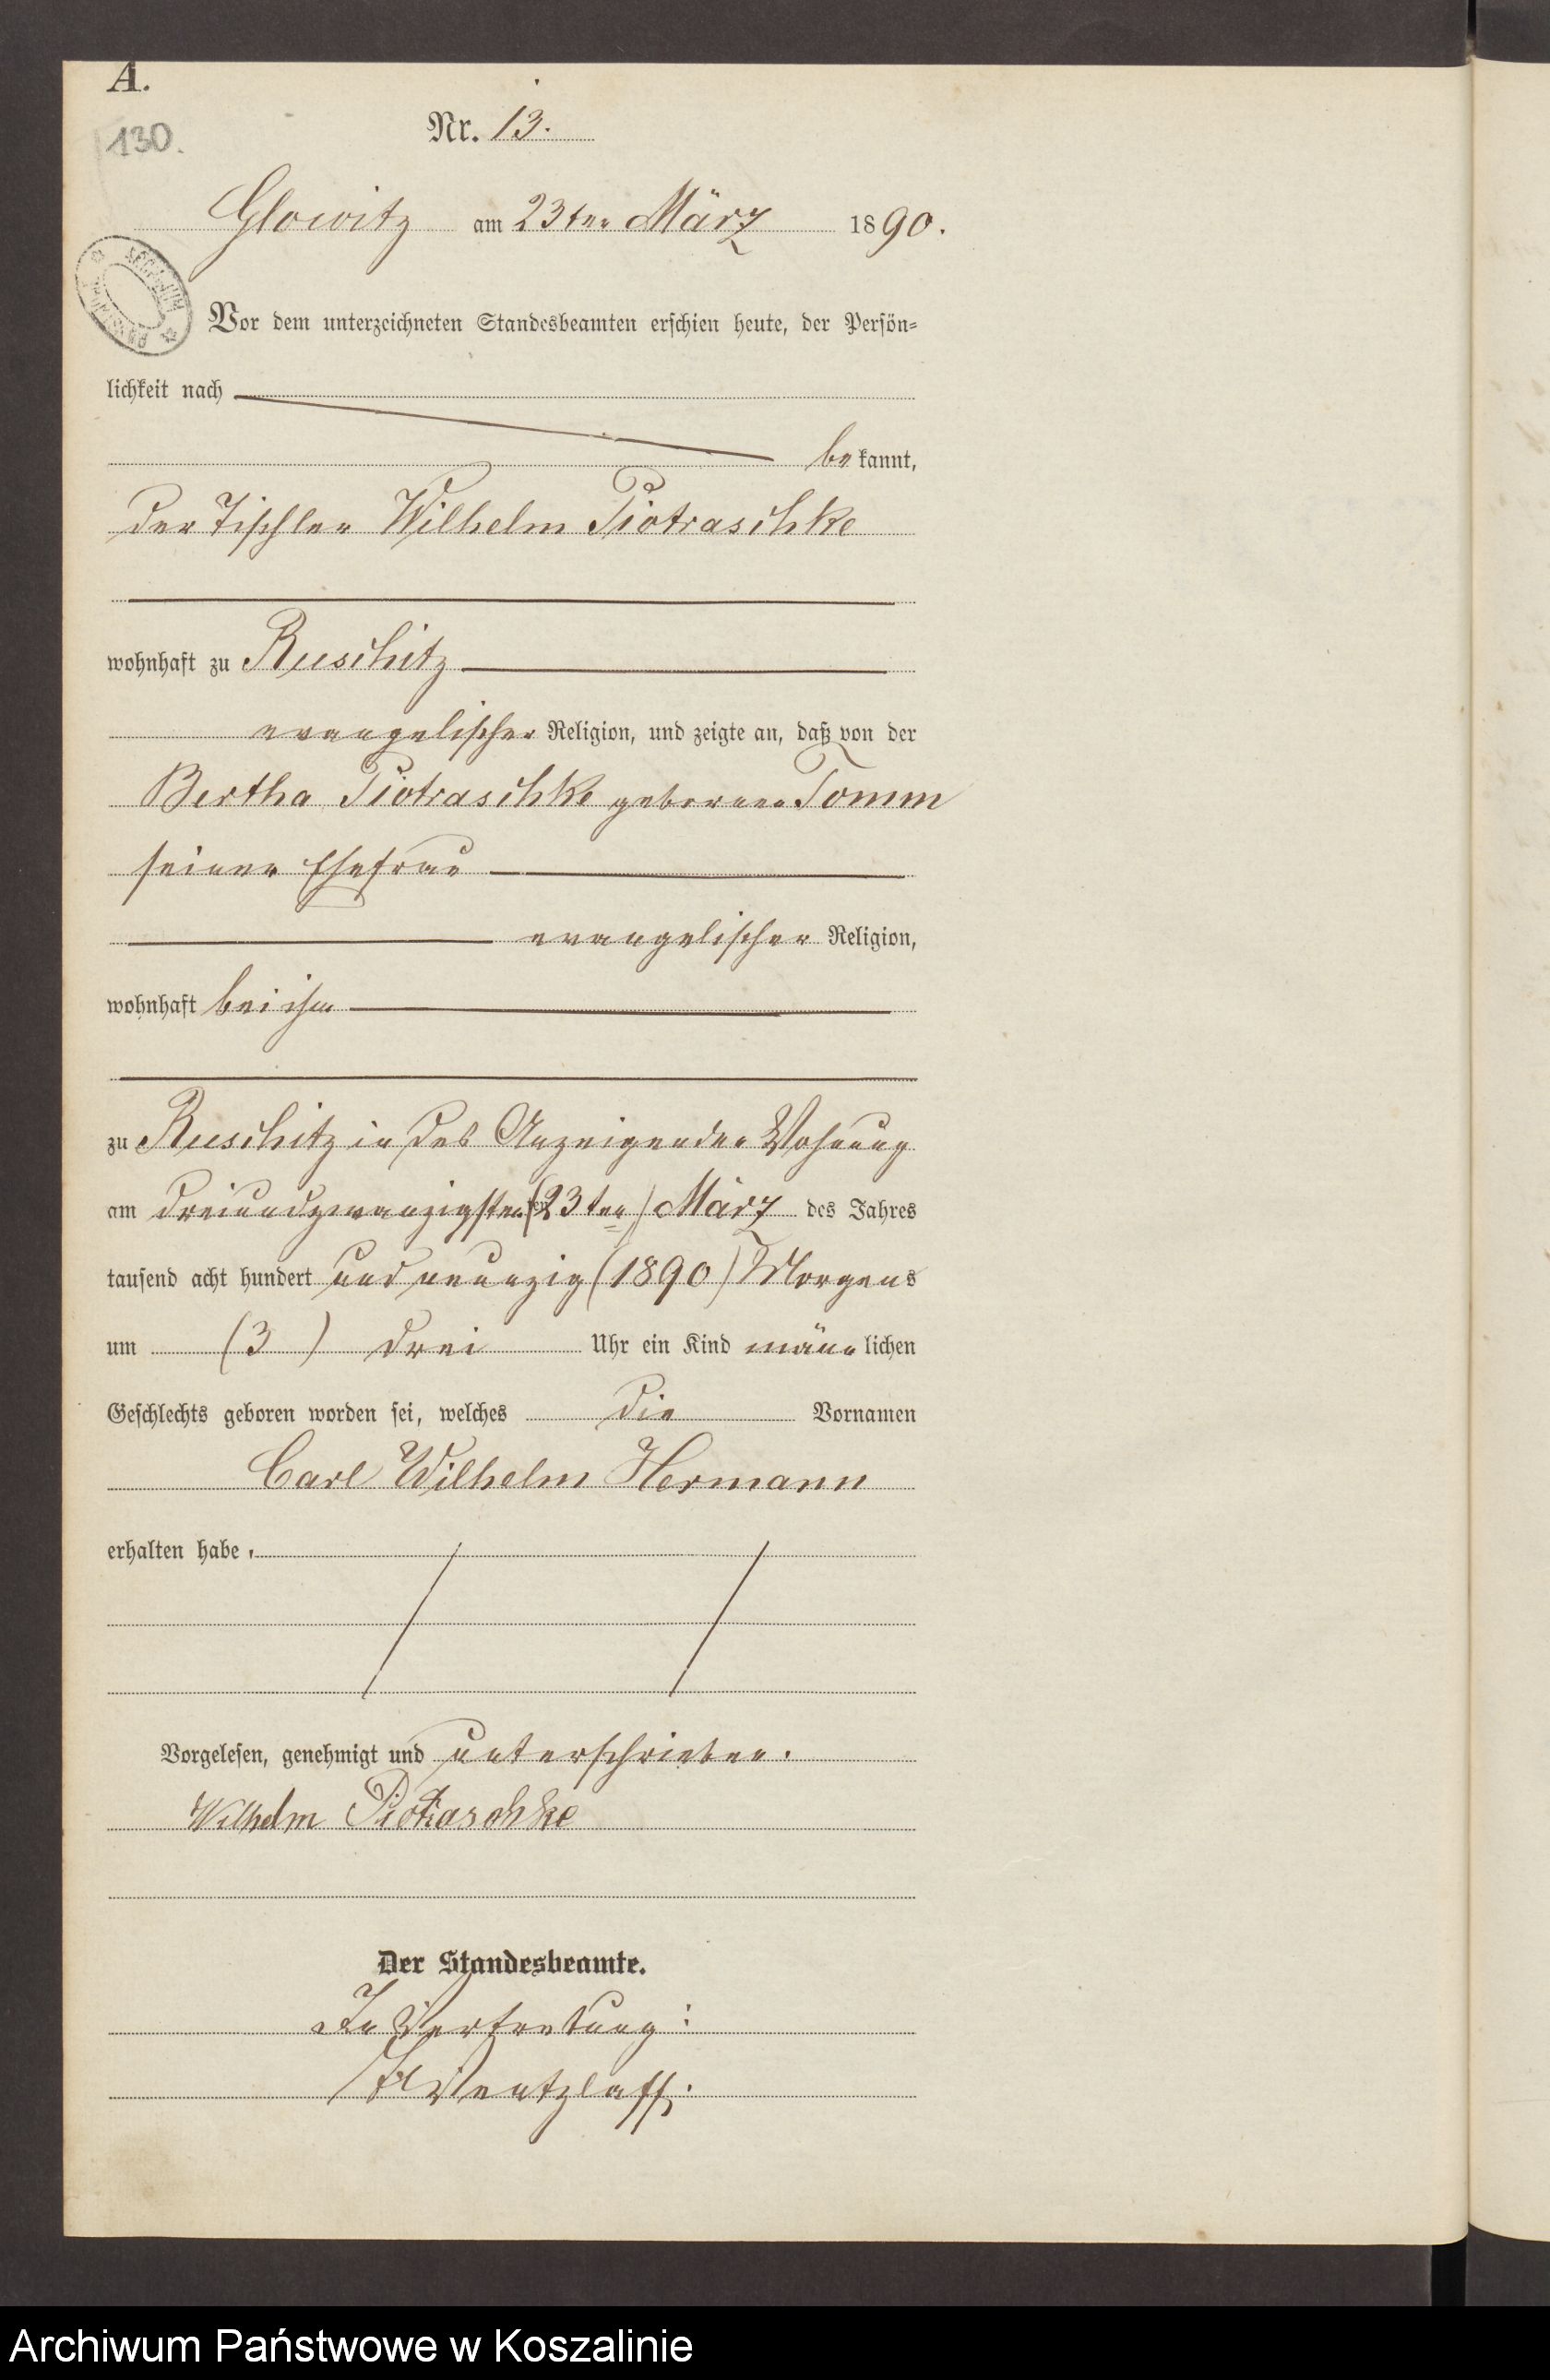 A.
130.
Nr. 13.
Glowitz am 23ten März 1890.
Vor dem unterzeichneten Standesbeamten erschien heute, der Persön=
lichkeit nach
bekannt,
der Tischler Wilhelm Piotraschke
wohnhaft zu Ruschitz
evangelischer Religion, und zeigte an, daß von der
Bertha Piotraschke geborenen Tomm
seiner Ehefrau
evangelischer Religion,
wohnhaft bei ihm
zu Ruschitz in des Anzeigenden Wohnung
am dreiundzwanzigsten (23ten) März des Jahres
tausend acht hundert und neunzig (1890) Morgens
um (3) drei Uhr ein Kind männlichen
Geschlechts geboren worden sei, welches die Vornamen
Carl Wilhelm Hermann
erhalten habe.
Vorgelesen, genehmigt und unterschrieben.
Wilhelm Piotraschke
Der Standesbeamte.
In Vertretung:
Wentzlaff.
Archiwum Państwowe w Koszalinie